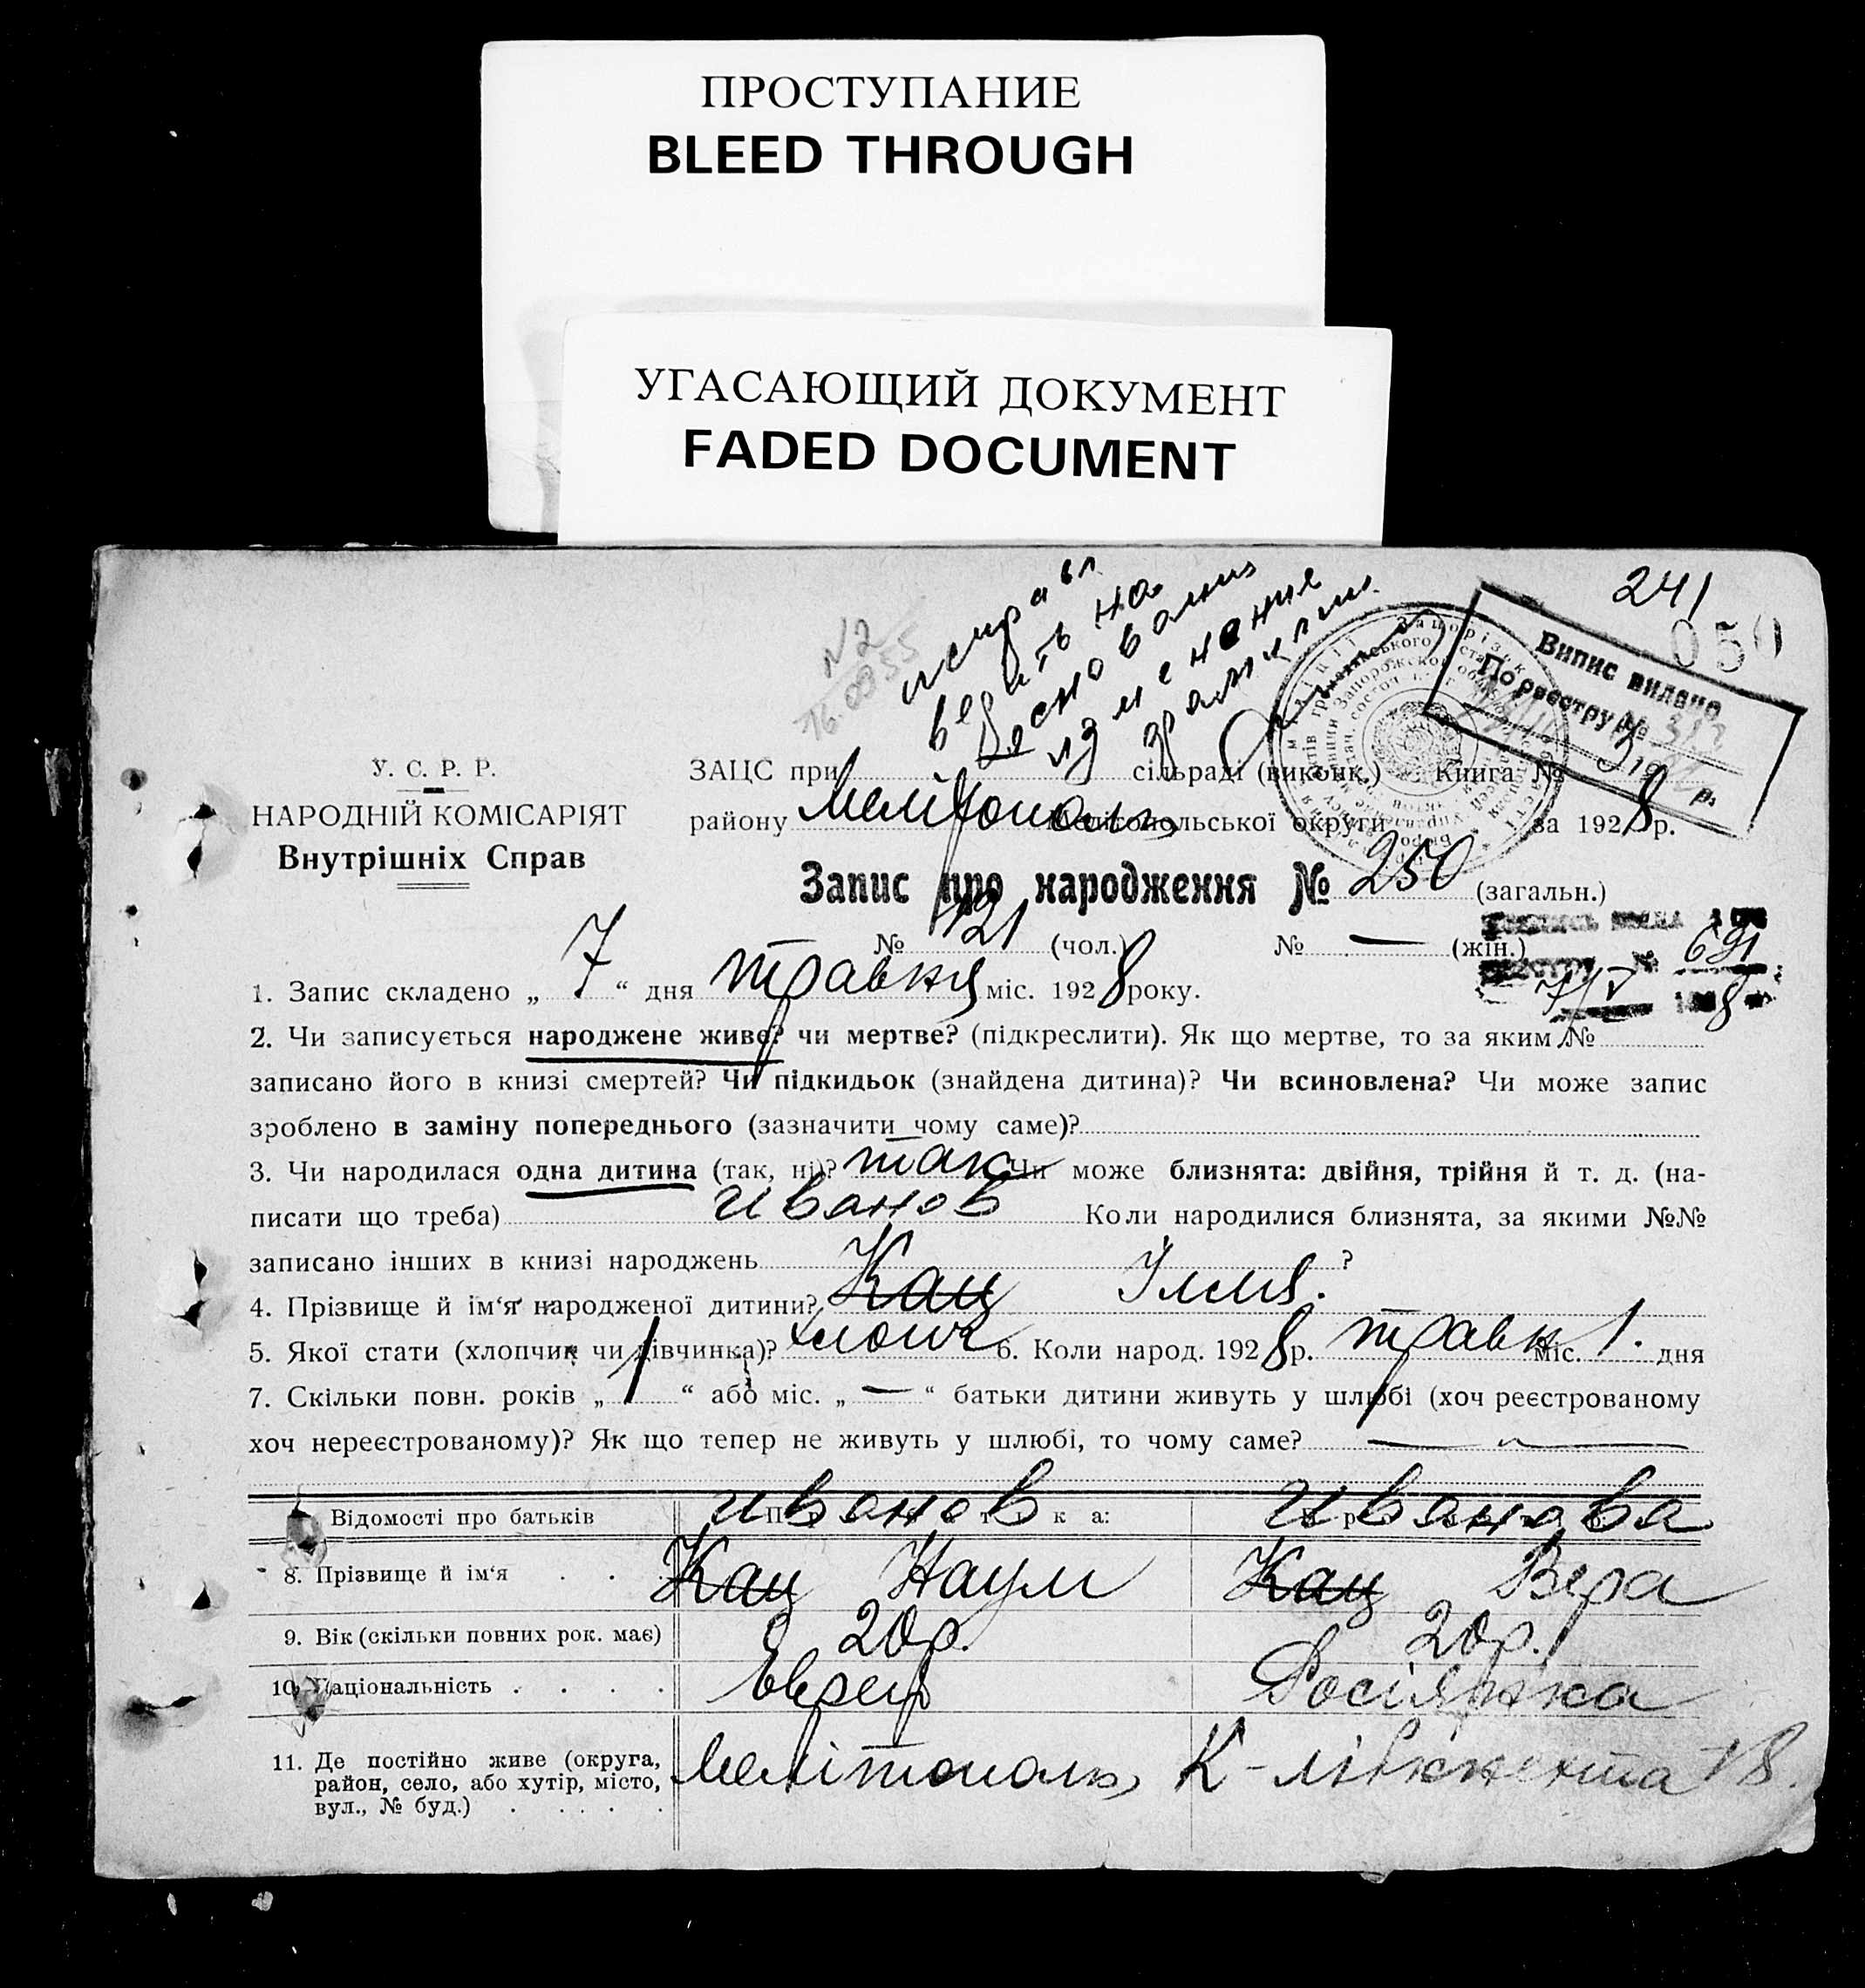 ПРОСТУПАНИЕ
BLEED THROUGH
УГАСАЮЩИЙ ДОКУМЕНТ
FADED DOCUMENT
241
050
N2
исправл
вести на
основании
изменения
фамилии.
Випис видано
По реєстру №
19 р.
У. С. Р. Р.
НАРОДНІЙ КОМІСАРІЯТ
Внутрішніх Справ
ЗАЦС при сільраді (виконк.) Книга №
району Мелітополь Мелітопольської округи за 1928 р.
Запис про народження № 250 (загальн.)
№ 121 (чол.) № — (жін.)
691
1. Запис складено „ 7 “ дня травня міс. 1928 року.
2. Чи записується народжене живе? чи мертве? (підкреслити). Як що мертве, то за яким №
записано його в книзі смертей? Чи підкидьок (знайдена дитина)? Чи всиновлена? Чи може запис
зроблено в заміну попереднього (зазначити чому саме)?
3. Чи народилася одна дитина (так, ні)? так Чи може близнята: двійня, трійня й т. д. (на-
писати що треба) Коли народилися близнята, за якими №№
записано інших в книзі народжень ?
Иванов
4. Прізвище й ім‘я народженої дитини? Кац Ілля.
5. Якої стати (хлопчик чи дівчинка)? хлопч 6. Коли народ. 1928 р. травн міс. 1. дня
7. Скільки повн. років „ 1 “ або міс. „ — “ батьки дитини живуть у шлюбі (хоч реєстрованому
хоч нереєстрованому)? Як що тепер не живуть у шлюбі, то чому саме? —
Відомості про батьків Иванов Иванова
8. Прізвище й ім‘я Кац Наум Кац Вера
9. Вік (скільки повних рок. має) 20р. 20р.
10. Національність Еврей Росіянка
11. Де постійно живе (округа, Мелітополь, К-Лібкнехта
район, село, або хутір, місто,
вул., № буд.)